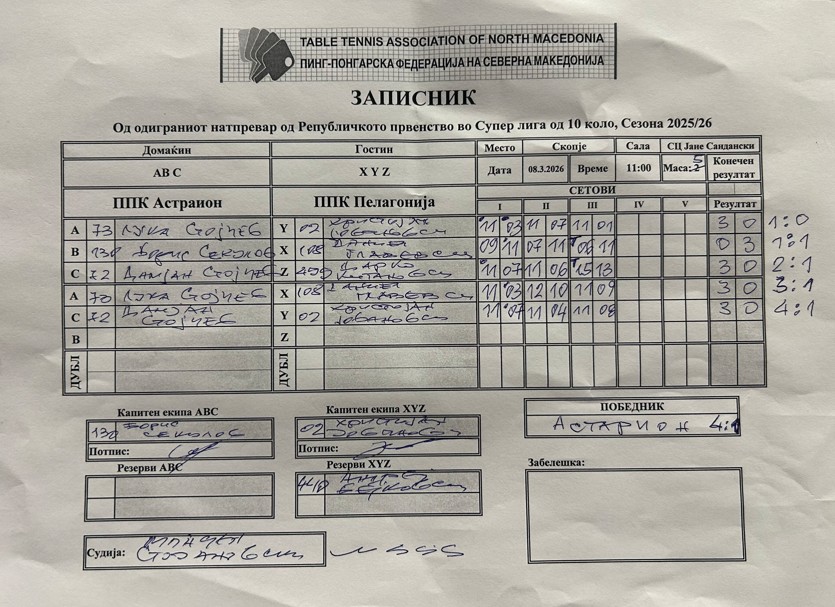 TABLE TENNIS ASSOCIATION OF NORTH MACEDONIA
ПИНГ-ПОНГАРСКА ФЕДЕРАЦИЈА НА СЕВЕРНА МАКЕДОНИЈА
ЗАПИСНИК
Од одиграниот натпревар од Републичкото првенство во Супер лига од 10 коло, Сезона 2025/26
Домаќин Гостин Место Скопје Сала СЦ Јане Сандански
АВ С X Y Z Дата 08.3.2026 Време 11:00 Маса: 5 Конечен резултат
ППК Астраион ППК Пелагонија СЕТОВИ
I II III IV V Резултат
A 73 ЛУКА СТОЈЧЕВ Y 02 11 03 11 07 11 01 3 0 1:0
B 130 X 108 09 11 07 11 11 0 3 1:1
C 72 ДАМЈАН СТОЈЧЕВ Z 11 07 11 06 15 13 3 0 2:1
A ЛУКА СТОЈЧЕВ X 108 11 03 12 10 11 09 3 0 3:1
C 72 ДАМЈАН СТОЈЧЕВ Y 02 11 07 11 04 11 08 3 0 4:1
B Z
ДУБЛ ДУБЛ
Капитен екипа ABC Капитен екипа XYZ ПОБЕДНИК
130 БОРИС СЕКУЛОВ 02 АСТАРИОН 4:1
Потпис: Потпис:
Резерви ABC Резерви XYZ Забелешка:
Судија: